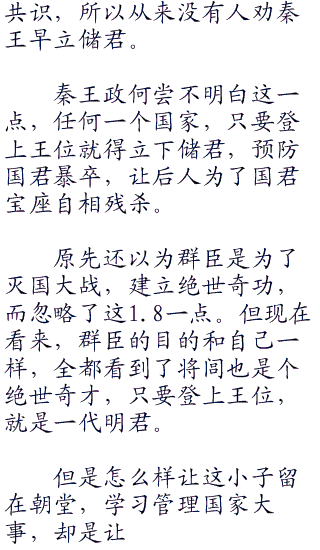 共识，所以从来没有人劝秦
王早立储君。
秦王政何尝不明白这一
点，任何一个国家，只要登
上王位就得立下储君，预防
国君暴卒，让后人为了国君
宝座自相残杀。
原先还以为群臣是为了
灭国大战，建立绝世奇功，
而忽略了这1.8一点。但现在
看来，群臣的目的和自己一
样，全都看到了将闾也是个
绝世奇才，只要登上王位，
就是一代明君。
但是怎么样让这小子留
在朝堂，学习管理国家大
事，却是让